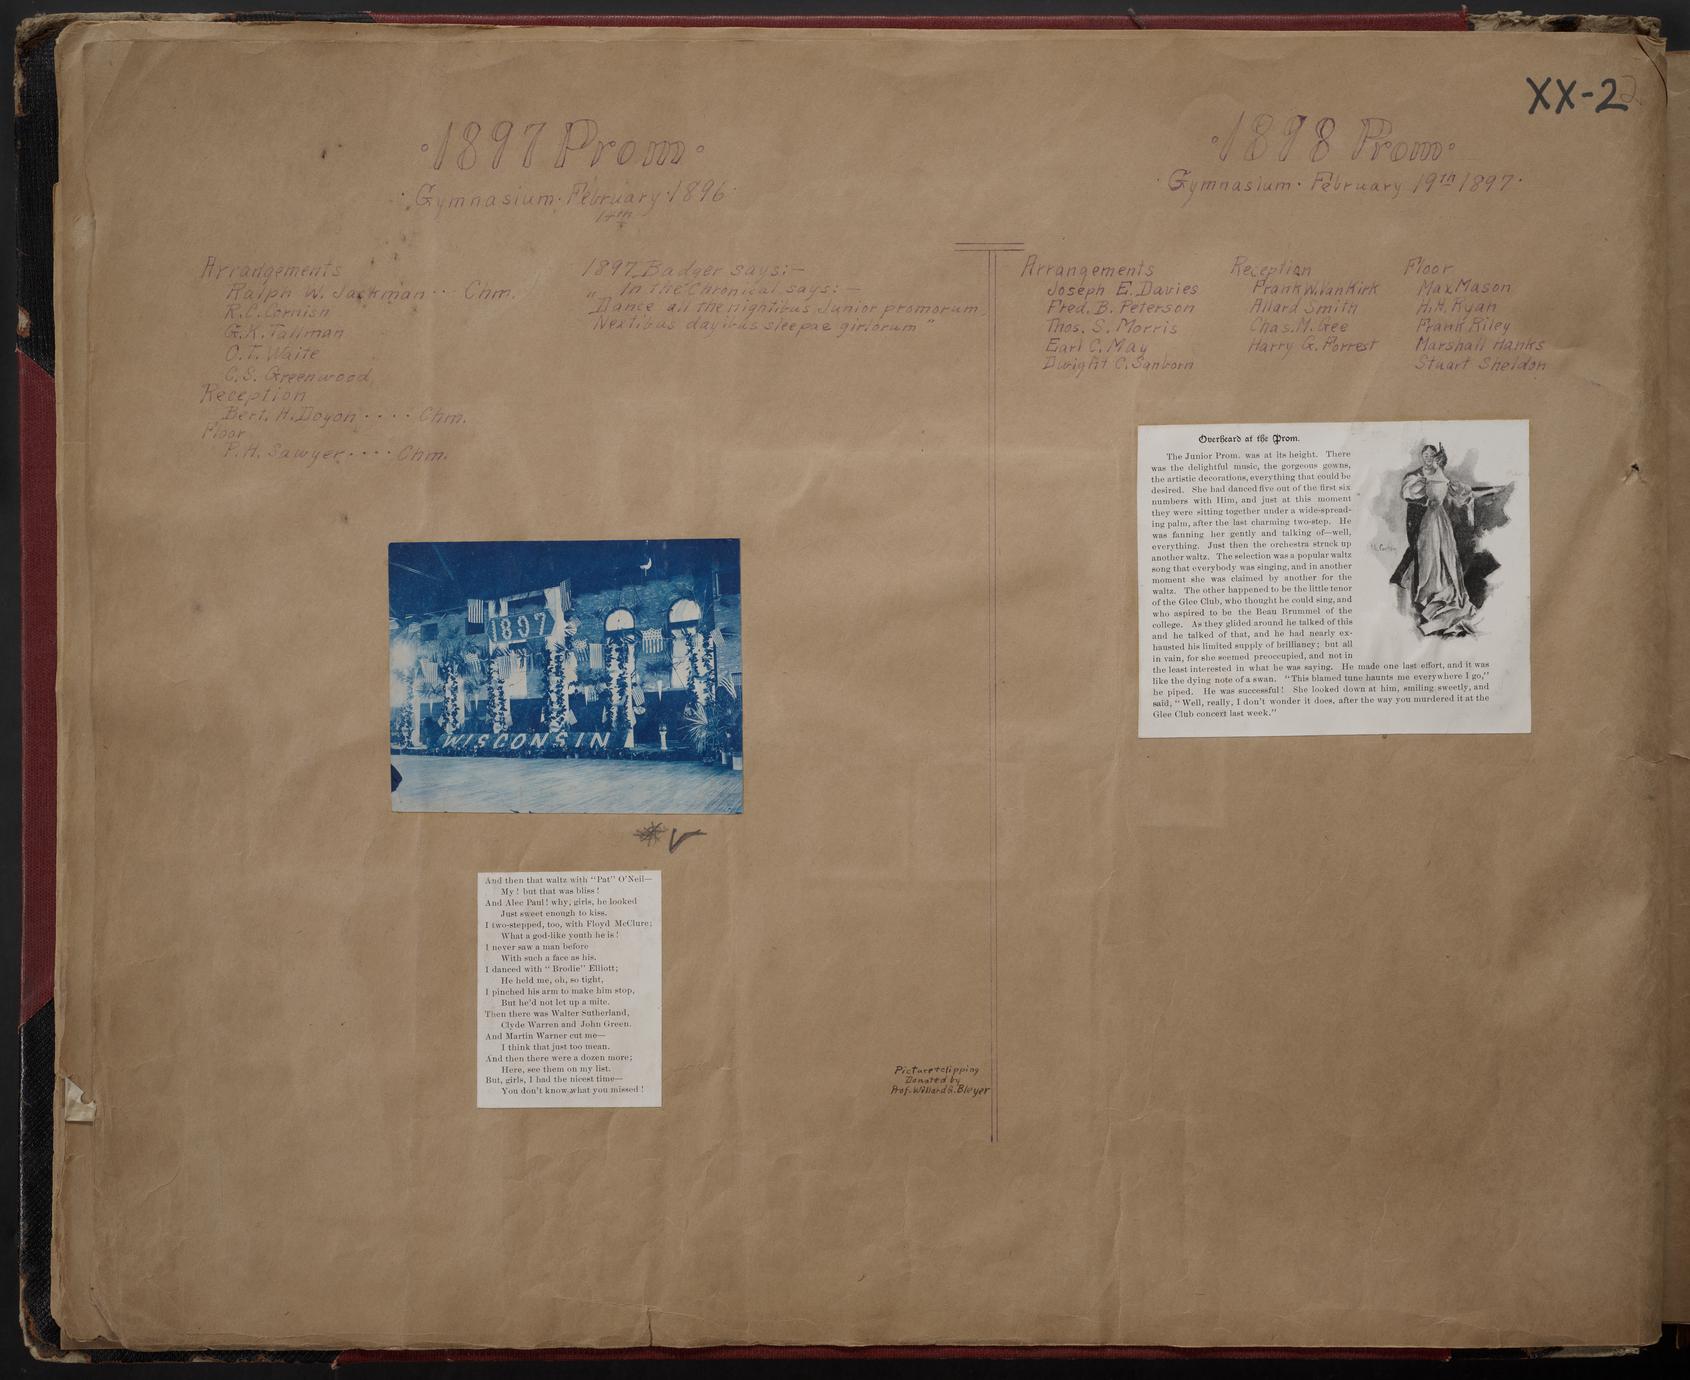 XX-2
·1897 Prom·
·Gymnasium·February·1896·
14th
Arrangements
Ralph W. Jackman ··· Chm.
R.C. Cornish
G.K. Tallman
O.T. Waite
C.S. Greenwood,
Reception
Bert. H. Doyon ···· Chm.
Floor
P.H. Sawyer ···· Chm.
1897 Badger says:—
"In the Chronical says:—
Dance all the nightibus Junior promorum,
Nextibus dayibus sleepae girlorum"
1897
WISCONSIN
And then that waltz with "Pat" O'Neil—
My! but that was bliss!
And Alec Paul! why, girls, he looked
Just sweet enough to kiss.
I two-stepped, too, with Floyd McClure;
What a god-like youth he is!
I never saw a man before
With such a face as his.
I danced with "Brodie" Elliott;
He held me, oh, so tight,
I pinched his arm to make him stop,
But he'd not let up a mite.
Then there was Walter Sutherland,
Clyde Warren and John Green.
And Martin Warner cut me—
I think that just too mean.
And then there were a dozen more;
Here, see them on my list.
But, girls, I had the nicest time—
You don't know what you missed!
Picture+clipping
Donated by
Prof. Willard G. Bleyer
·1898 Prom·
·Gymnasium·February 19th 1897·
Arrangements
Joseph E. Davies
Fred. B. Peterson
Thos. S. Morris
Earl C. May
Dwight C. Sanborn
Reception
Frank W. Van Kirk
Allard Smith
Chas. M. Gee
Harry G. Forrest
Floor
Max Mason
H.H. Ryan
Frank Riley
Marshall Hanks
Stuart Sheldon
Overheard at the Prom.
The Junior Prom. was at its height. There
was the delightful music, the gorgeous gowns,
the artistic decorations, everything that could be
desired. She had danced five out of the first six
numbers with Him, and just at this moment
they were sitting together under a wide-spread-
ing palm, after the last charming two-step. He
was fanning her gently and talking of—well,
everything. Just then the orchestra struck up
another waltz. The selection was a popular waltz
song that everybody was singing, and in another
moment she was claimed by another for the
waltz. The other happened to be the little tenor
of the Glee Club, who thought he could sing, and
who aspired to be the Beau Brummel of the
college. As they glided around he talked of this
and he talked of that, and he had nearly ex-
hausted his limited supply of brilliancy; but all
in vain, for she seemed preoccupied, and not in
the least interested in what he was saying. He made one last effort, and it was
like the dying note of a swan. "This blamed tune haunts me everywhere I go,"
he piped. He was successful! She looked down at him, smiling sweetly, and
said, "Well, really, I don't wonder it does, after the way you murdered it at the
Glee Club concert last week."